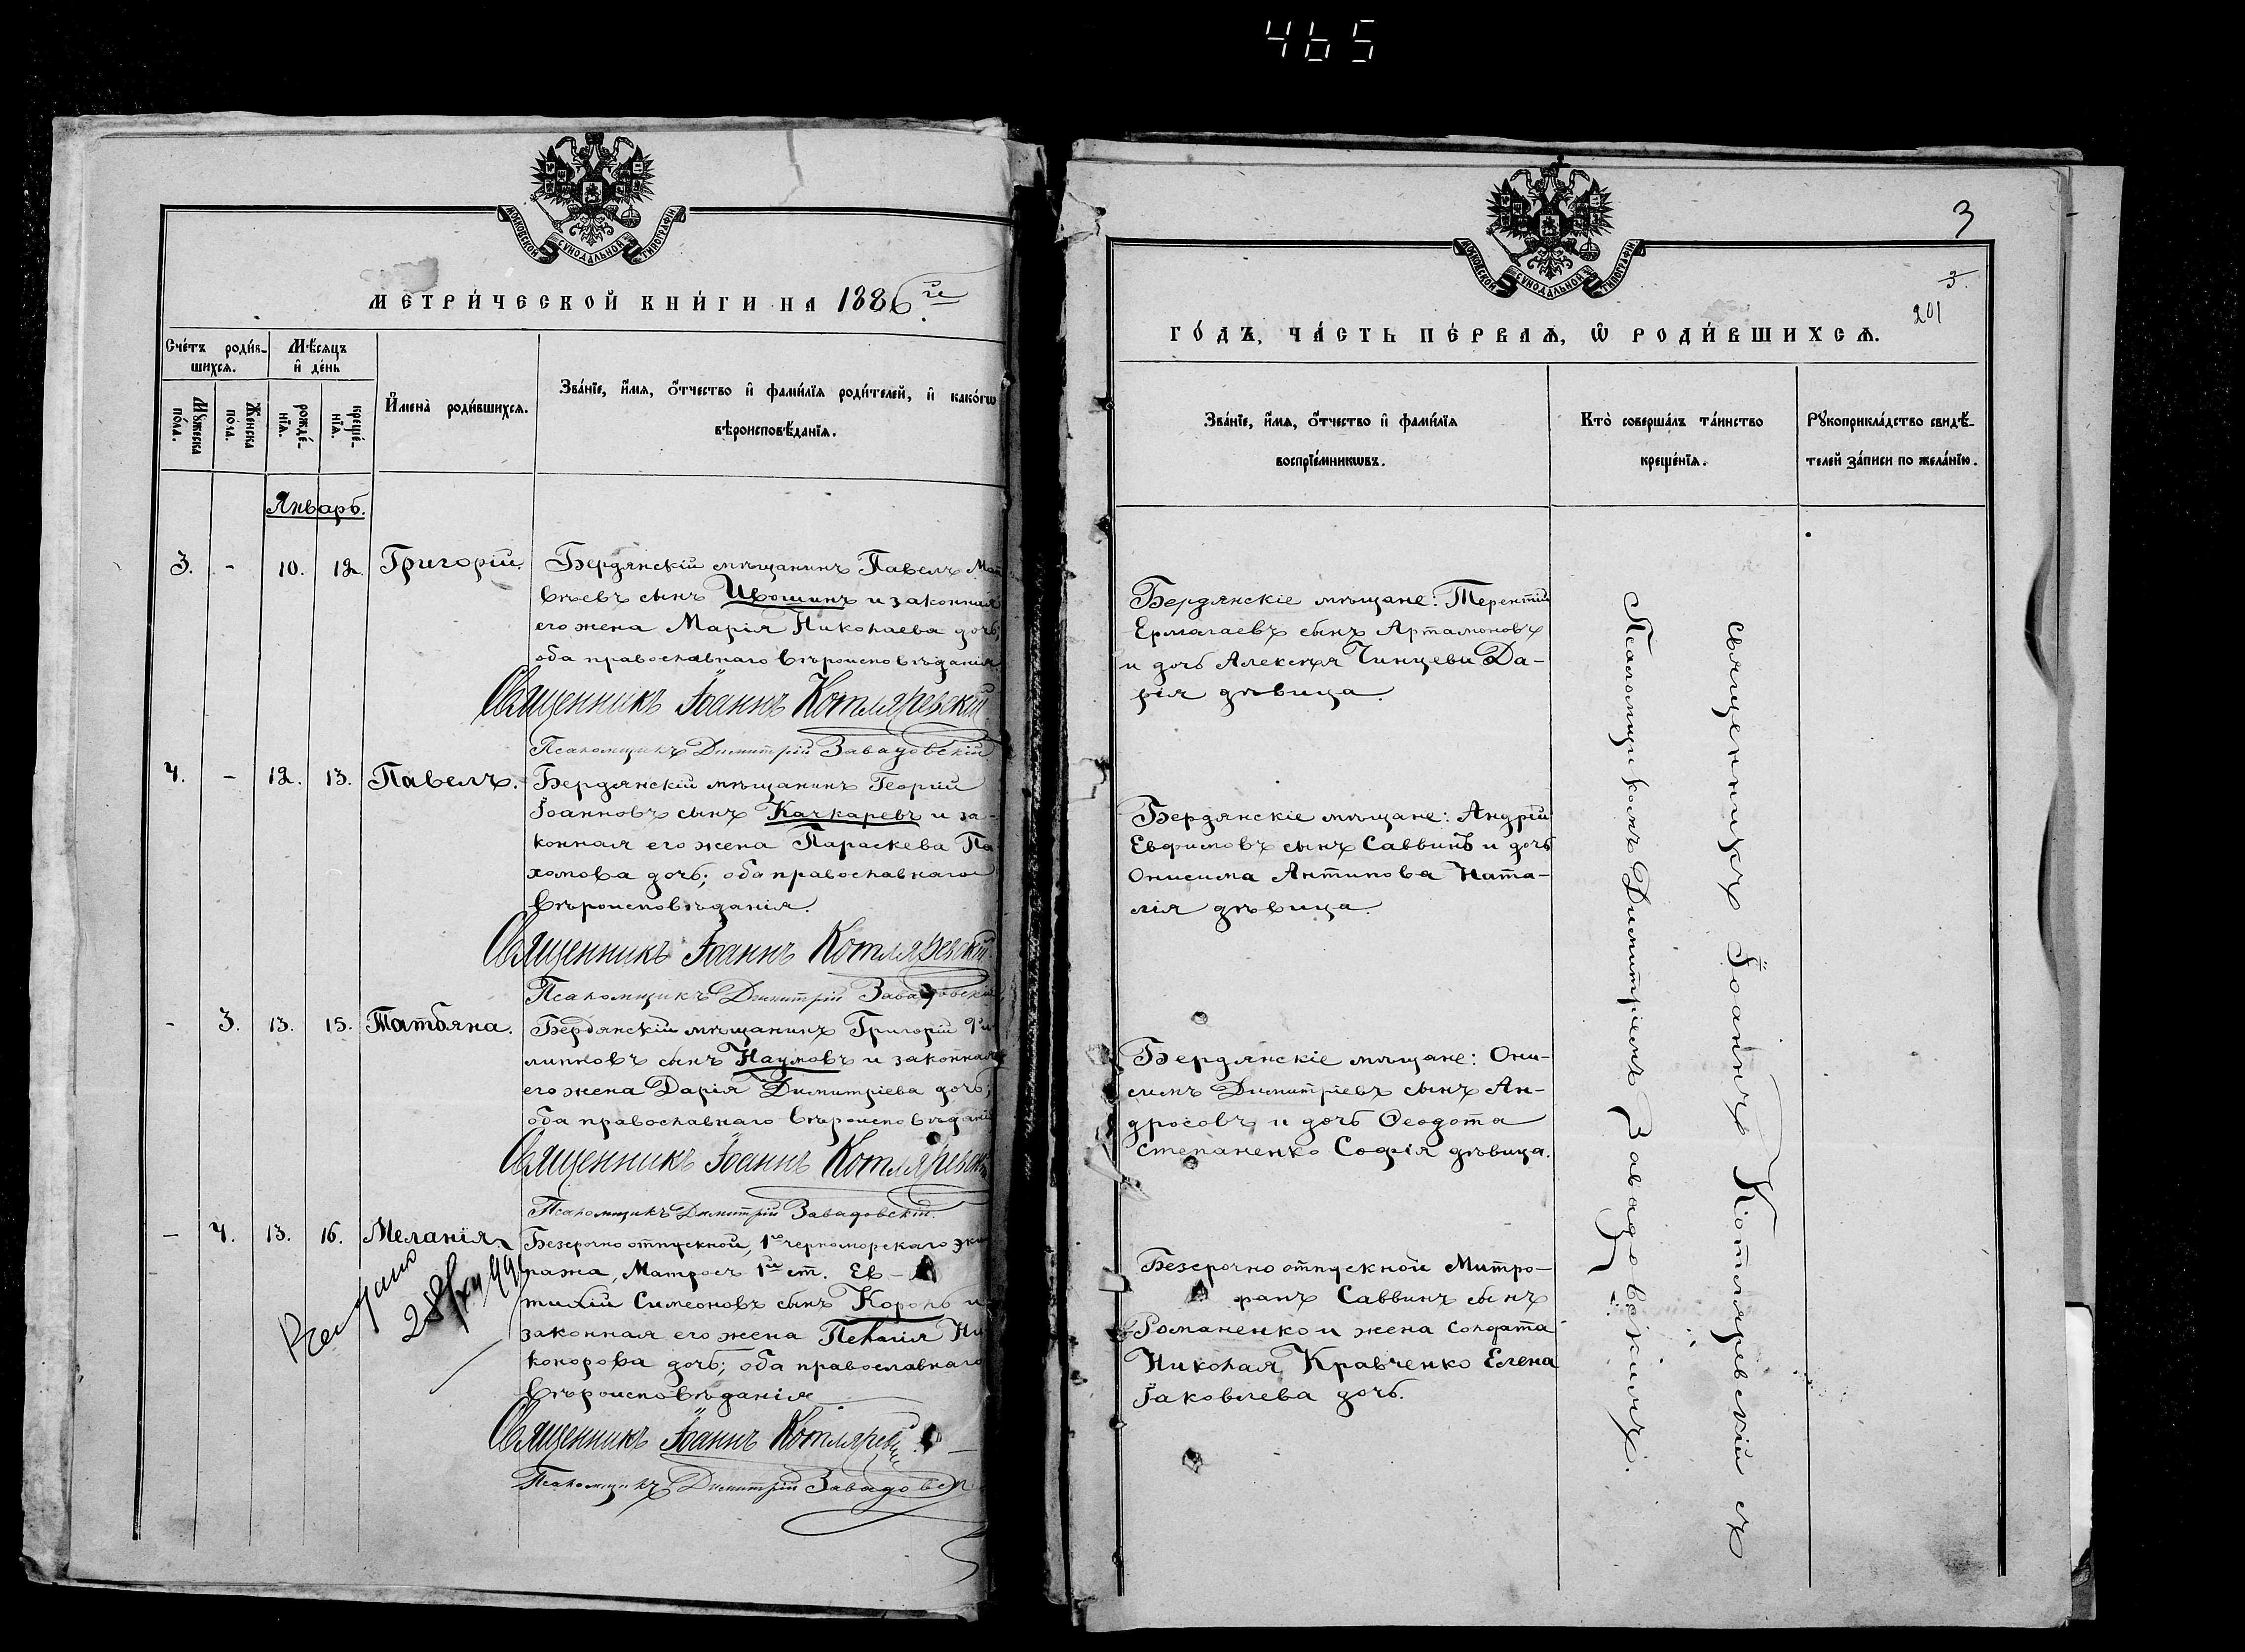 465
МОСКОВСКОЙ СѴНОДАЛЬНОЙ ТИПОГРАФІИ
МЕТРИ́ЧЕСКОЙ КНИ́ГИ НА 1886 го
Сче́тъ роди́в-
шихся.
Мѣ́сяцъ
и҆ де́нь
И҆мена̀ роди́вшихся.
Зва́нїе, и҆́мя, ѻ҆́тчество и҆ фами́лїя роди́телей, и҆ како́гѡ
вѣроисповѣ́данїя.
Мꙋ́жеска
по́ла.
Же́нска
по́ла.
рожде́-
нїя.
креще́-
нїя.
Январь.
3. - 10. 12. Григорій. Бердянскій мѣщанинъ Павелъ Мат
вѣевъ сынъ Ивошинъ и законная
его жена Марія Николаева дочь;
оба православнаго вѣроисповѣданія.
Священникъ Іоаннъ Котляревскій
Псаломщикъ Димитрій Завадовскій
4. - 12. 13. Павелъ. Бердянскій мѣщанинъ Георгій
Іоанновъ сынъ Качкаревъ и за-
конная его жена Параскева Па
хомова дочь; оба православнаго
вѣроисповѣданія.
Священникъ Іоаннъ Котляревскій
Псаломщикъ Димитрій Завадовскій
- 3. 13. 15. Татьяна. Бердянскій мѣщанинъ Григорій Фи
липповъ сынъ Наумовъ и законная
его жена Дарія Димитріева дочь;
оба православнаго вѣроисповѣданія
Священникъ Іоаннъ Котляревскій
Псаломщикъ Димитрій Завадовскій.
- 4. 13. 16. Меланія. Безсрочно отпускной, 1го черноморскаго эки
пажа, Матросъ 1й ст. Ев-
тихій Симеоновъ сынъ Король и
законная его жена Пелагія Ни
конорова дочь; оба православнаго
вѣроисповѣданія
Священникъ Іоаннъ Котляревскій
Псаломщикъ Димитрій Завадовскій
3
3.
201
МОСКОВСКОЙ СѴНОДАЛЬНОЙ ТИПОГРАФІИ
ГО́ДЪ, ЧА́СТЬ ПЕ́РВАЯ, Ѡ҆ РОДИ́ВШИХСЯ.
Зва́нїе, и҆́мя, ѻ҆́тчество и҆ фами́лїя
воспрїе́мникѡвъ.
Кто̀ соверша́лъ та́инство
креще́нїя.
Рꙋкоприкла́дство свидѣ́-
телей за́писи по жела́нїю.
Бердянскіе мѣщане: Терентій
Ермолаевъ сынъ Артамоновъ
и дочь Алексѣя Чинцеви Да-
рія дѣвица.
Бердянскіе мѣщане: Андрей
Евфимовъ сынъ Саввинъ и дочь
Онисима Антипова Ната-
лія дѣвица.
Бердянскіе мѣщане: Они-
симъ Димитріевъ сынъ Ан-
дросовъ и дочь Ѳеодота
Степаненко Софія дѣвица.
Безсрочно отпускной Митро-
фанъ Саввинъ сынъ
Романенко и жена солдата
Николая Кравченко Елена
Іаковлева дочь.
Священникъ Іоаннъ Котляревскій съ
Псаломщикомъ Димитріемъ Завадовскимъ.